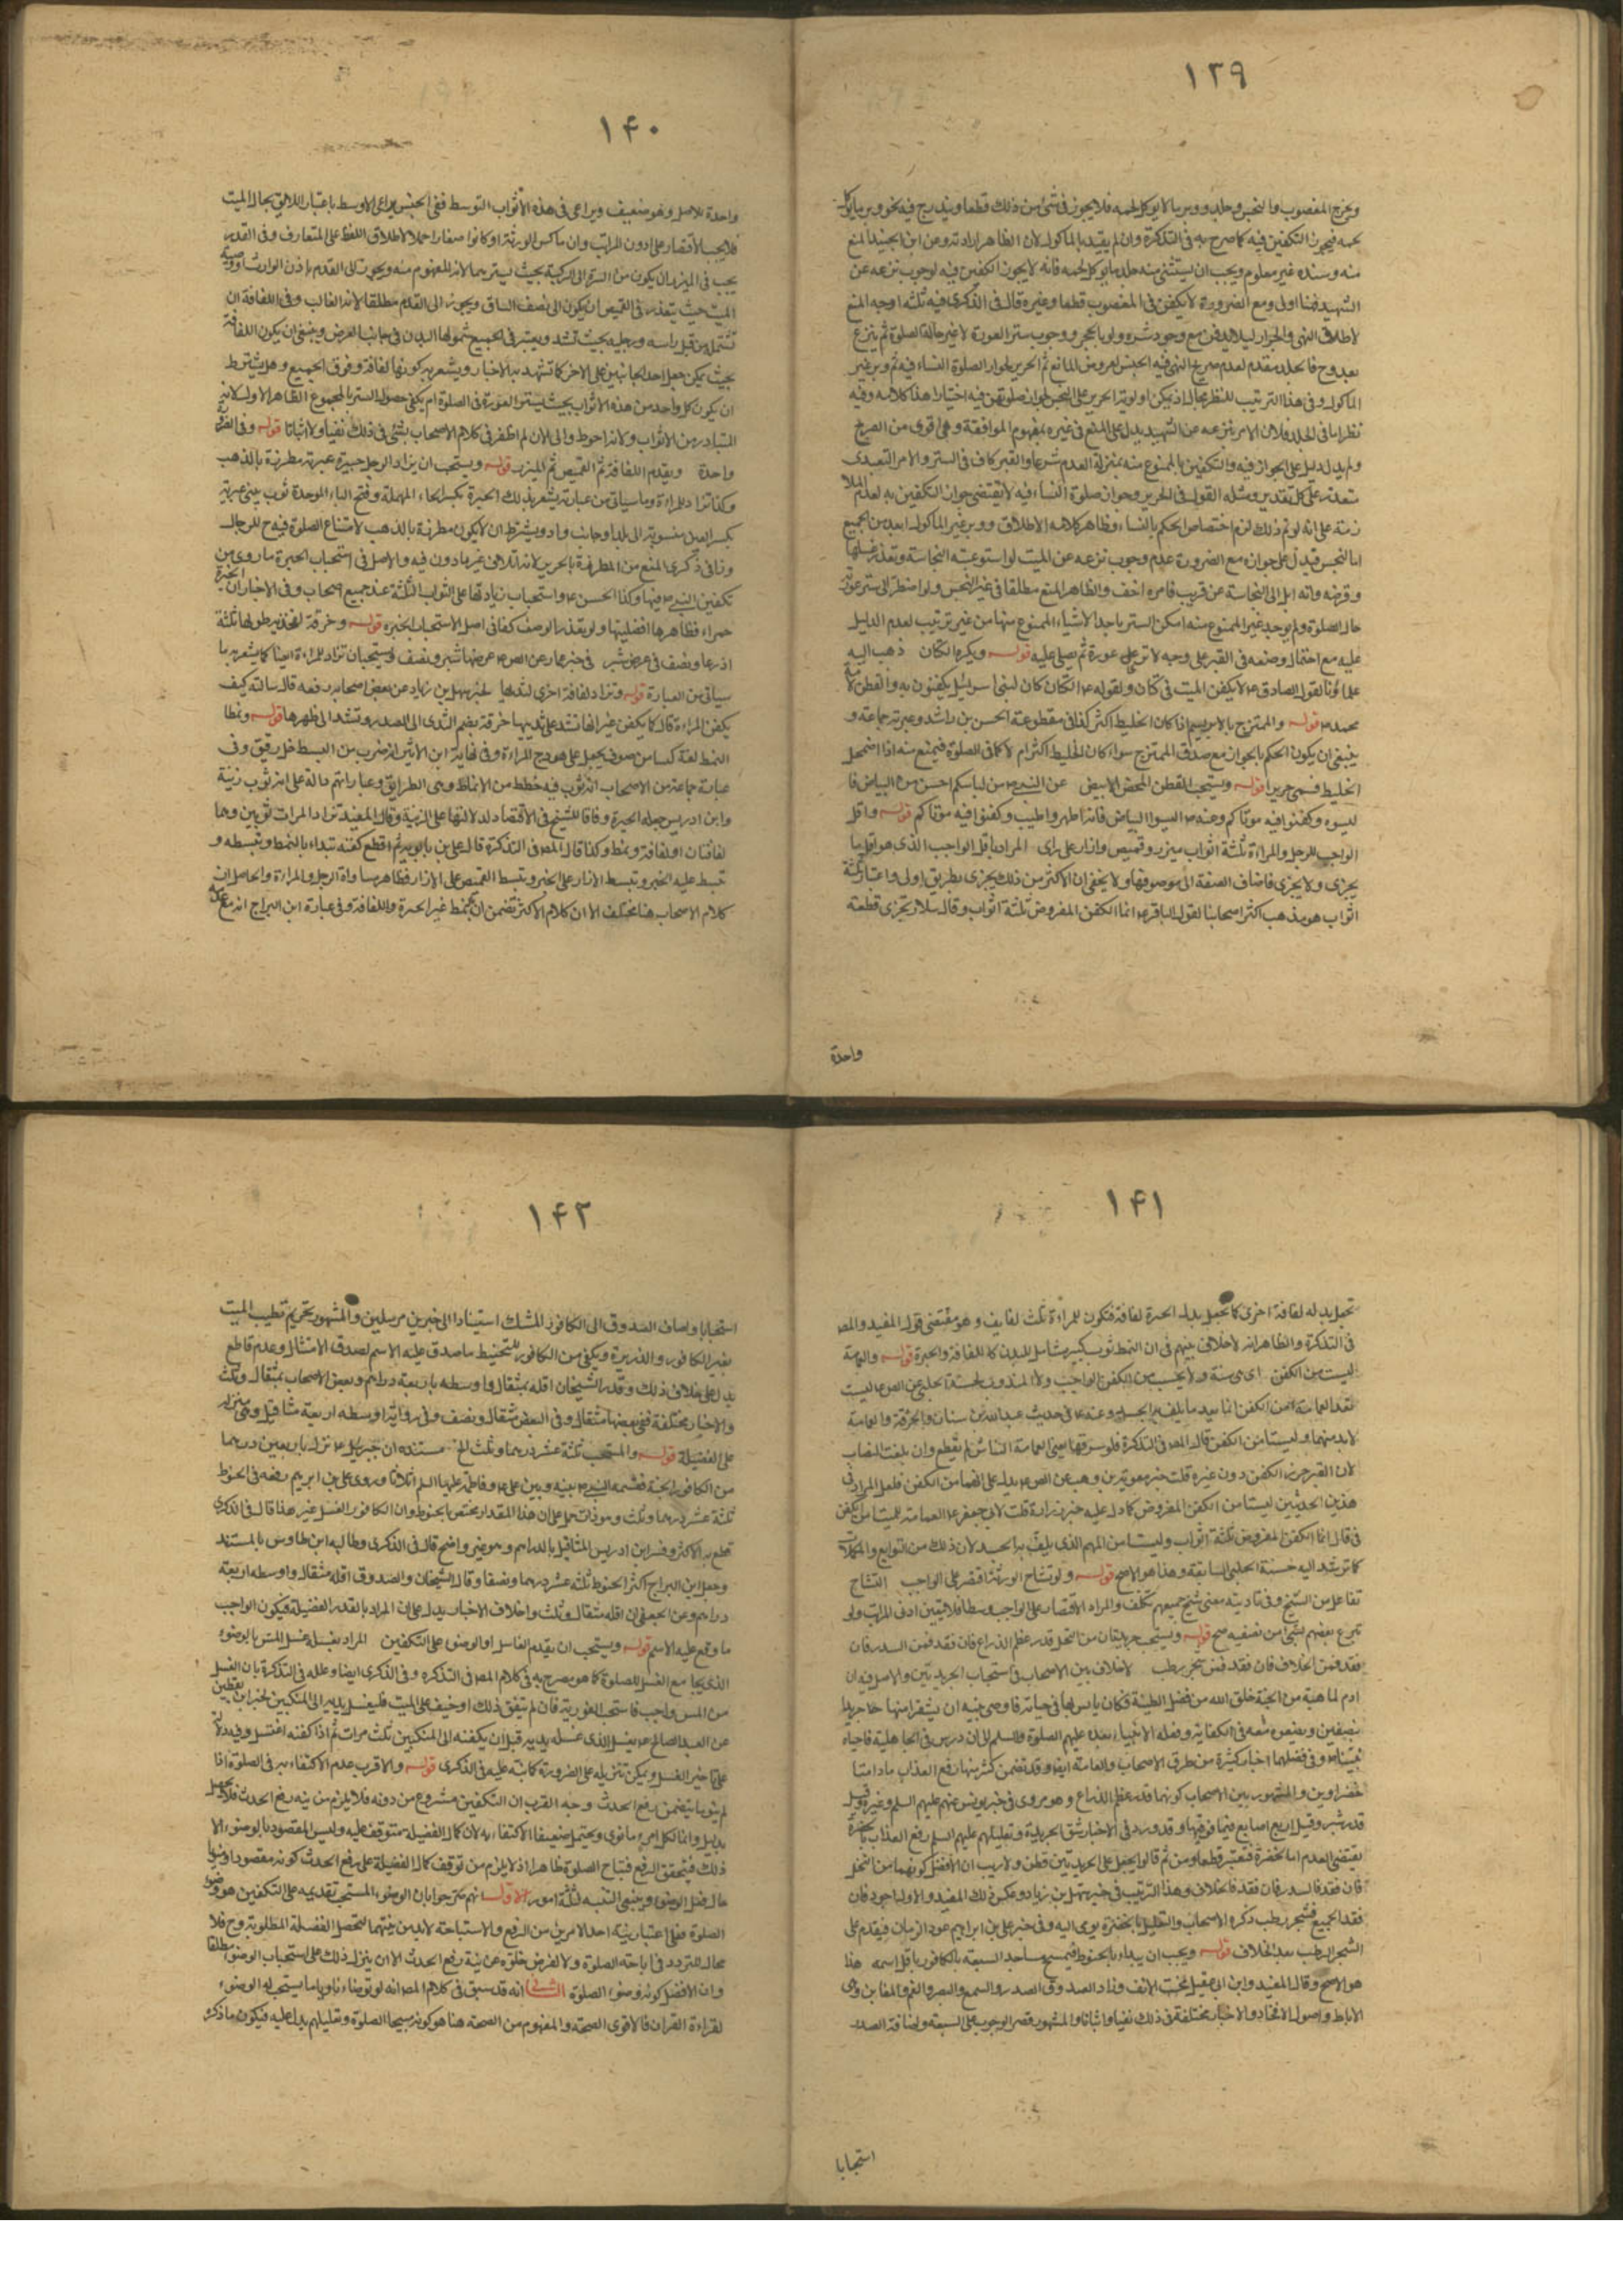 ١٣٩
ويخرج المغصوب والنجس وجلد ووبر ما لا يوكل لحمه فلا يجوز في شئ من ذلك قطعا ويندرج فيه نحو وبر ما يوكل
لحمه فيجوز التكفين فيه كما صرح به في التذكرة وان لم يقيد بالماكول لان الظاهر ارادته ومن ابن الجنيد المنع
منه وسنده غير معلوم ويجب ان يستثنى منه جلد ما يوكل لحمه فانه لا يجوز التكفين فيه لوجوب نزعه عن
الشهيد فهنا اولى ومع الضرورة لا يكفن في المغصوب قطعا وغيره قال في الذكرى فيه ثلثة اوجه المنع
لاطلاق النهي والجواز ليلا يدفن مع وجود ستره ولو بالحجر ووجوب ستر العورة لا غير حالة الصلوة ثم ينزع
بعد وح فالجلد مقدم لعدم صريح النهي فيه النجس لعروض المانع ثم الحرير لجواز الصلوة النساء فيه ثم وبر غير
الماكول وفي هذا الترتيب للنظر مجال اذ يمكن اولوية الحرير على النجس لجواز صلوتهن فيه اختيارا هذا كلامه وفيه
نظر اما في الجلد فلان الامر بنزعه عن الشهيد يدل على المنع في غيره بمفهوم الموافقة وهي اقوى من الصريح
ولم يدل دليل على الجواز فيه والتكفين بالممنوع منه بمنزلة العدم شرعا والقبر كاف في الستر والامر التعبدى
متعذر على كل تقدير ومثله القول في الحرير وجواز صلوة النساء فيه لا يقتضى جواز التكفين به لعدم الملا
زمة على انه لو تم ذلك لزم اختصاص الحكم بالنساء وظاهر كلامه الاطلاق ووبر غير الماكول ابعد من الجميع
اما النجس فيدل على جوازه مع الضرورة عدم وجوب نزعه عن الميت لو استوعبته النجاسة وتعذر غسلها
وقرضه وانه ايل الى النجاسة عن قريب فامره اخف والظاهر المنع مطلقا في غير النجس ولو اضطر الى ستر عورته
حال الصلوة ولم يوجد غير الممنوع منه امكن الستر باحد الاشياء الممنوع منها من غير ترتيب لعدم الدليل
عليه مع احتمال وضعه في القبر على وجه لا ترى عورة ثم يصلى عليه قوله ويكره الكتان ذهب اليه
علماؤنا لقول الصادق ع لا يكفن الميت في كتان ولقوله ع الكتان كان لبنى اسرائيل يكفنون به والقطن لامة
محمد ص قوله والممتزج بالابريسم اذا كان الخليط اكثر كذا في مقطوعة الحسن بن راشد وعبر به جماعة و
ينبغى ان يكون الحكم بالجواز مع صدق الممتزج سواء كان الخليط اكثر ام لا كما في الصلوة فيمنع منه اذا اضمحل
الخليط فسمى حريرا قوله ويستحب القطن المحض الابيض عن النبي ص من لباسكم احسن من البياض فا
لبسوه وكفنوا فيه موتاكم وعنه ص البسوا البياض فانه اطهر واطيب وكفنوا فيه موتاكم قوله واقل
الواجب للرجل والمراة ثلثة اثواب ميزر وقميص وازار على راى المراد باقل الواجب الذى هو اقل ما
يجزى ولا يجزى فاضاف الصفة الى موصوفها ولا يخفى ان الاكثر من ذلك يجزى بطريق اولى واعتبار ثلثة
اثواب هو مذهب اكثر اصحابنا لقول الباقر ع انما الكفن المفروض ثلثة اثواب وقال سلار يجزى قطعة
واحدة
١٤٠
واحدة للاصل وهو ضعيف ويراعى في هذه الاثواب التوسط ففى الجنس يراعى الاوسط باعتبار اللايق بحال الميت
فلا يجب الاقتصار على ادون المراتب وان ماكس الورثة او كانوا صغارا حملا لاطلاق اللفظ على المتعارف وفى القدر
يجب في الميزر ان يكون من السرة الى الركبة بحيث يسترهما لانه المفهوم منه ويجوز الى القدم باذن الوارث او وصية
الميت حيث يتعذر في القميص ان يكون الى نصف الساق ويجوز الى القدم مطلقا لانه الغالب وفى اللفافة ان
تشتمل من قبل راسه ورجليه بحيث تشد ويعتبر في الجميع شمولها البدن في جانب العرض وينبغى ان يكون اللفافة
بحيث يمكن جعل احد الجانبين على الاخر كما تشهد به الاخبار ويشعر به كونها لفافة وفوق الجميع وهل يشترط
ان يكون كل واحد من هذه الاثواب بحيث يستر العورة في الصلوة ام يكفى حصول الستر بالمجموع الظاهر الاول لانه
المتبادر من الاثواب ولانه احوط والى الان لم اظفر في كلام الاصحاب بشئ في ذلك نفيا ولا اثباتا قوله وفى الضرورة
واحدة ويقدم اللفافة ثم القميص ثم الميزر قوله ويستحب ان يزاد الرجل حبرة عبرية مطرزة بالذهب
وكذا تزاد المراة وما سياتى من عبارته يشعر بذلك الحبرة بكسر الحاء المهملة وفتح الباء الموحدة ثوب يمنى عبرية
بكسر العين منسوبة الى بلد او جانب واد ويشترط ان لا يكون مطرزة بالذهب لامتناع الصلوة فيه ح للرجال
وزاد في الذكرى المنع من المطرزة بالحرير لانه اتلاف غير ماذون فيه والاصل في استحباب الحبرة ما روى من
تكفين النبي ص فيها وكذا الحسن ع واستحباب زيادتها على الثواب الثلثة عند جميع اصحاب وفى الاخبار ان الحبرة
حمراء فظاهرها افضليتها ولو تعذر الوصف كفانى اصل الاستحباب الحبرة قوله وخرقة لفخذيه طولها ثلثة
اذرع ونصف في عرض شبر في خبر عمار عن الص ع عرضها شبر ونصف ويستحبان تزاد للمراءة ايضا كما يشعر به ما
سياتى من العبارة قوله وتزاد لفافة اخرى لثدييها لخبر سهل بن زياد عن بعض اصحابه رفعه قال سالته كيف
يكفن المراءة قال كما يكفن غير انها تشد على ثدييها خرقة بضم الثدى الى الصدر وتشد الى ظهرها قوله ونمطا
النمط لغة كساء من صوف يجعل على هودج المراءة وفى نهاية ابن الاثير انه ضرب من البسط خل رقيق وفى
عبارة جماعة من الاصحاب انه ثوب فيه خطط من الانماط وهى الطرايق وعباراتهم دالة على انه ثوب زينة
وابن ادريس جعله الحبرة وفاقا للشيخ في الاقتصاد لدلالتها على الزينة وقال المفيد تزاد المرات ثوبين وهما
لفافتان او لفافة ونمط وكذا قال المص في التذكرة قال على بن بابويه ثم اقطع كفنه تبداء بالنمط وتبسطه و
تبسط عليه الحبرة وتبسط الازار على الحبرة وتبسط القميص على الازار فظاهر مساواة الرجل والمراءة والحاصل ان
كلام الاصحاب هنا مختلف الا ان كلام الاكثر تضمن ان النمط غير الحبرة واللفافة وفى عبارة ابن البراج انه مع عدمه
١٤١
تجعل بدله لفافة اخرى كما تجعل بدل الحبرة لفافة فتكون للمراءة ثلث لفايف وهو مقتضى قول المفيد والمص
فى التذكرة والظاهر انه لا خلاف بينهم في ان النمط ثوب كبير شامل للبدن كاللفافة والحبرة قوله والعمامة
ليست من الكفن اى هى سنة ولا يحسب من الكفن الواجب ولا المندوب لحسنة الحلبى عن الص ع ليست
تعد العمامة من الكفن انما يعد ما يلف به الجسد وعنه ع في حديث عبد الله بن سنان والخرقة والعمامة
لابد منهما وليستا من الكفن قال المص في التذكرة فلو سرقها يعنى العمامة النباش لم يقطع وان بلغت النصاب
لان القبر حرز الكفن دون غيره قلت خبر معوية بن وهب عن الص ع يدل على انهما من الكفن فلعل المراد في
هذين الحديثين ليستا من الكفن المفروض كما دل عليه خبر زرارة قلت لابى جعفر ع العمامة للميت من الكفن
فى قال انما الكفن المفروض ثلثة اثواب وليستا من المهم الذى يلف به الجسد لان ذلك من التوابع والمكملات
كما ترشد اليه حسنة الحلبى السابقة وهذا هو الاصح قوله ولو تشاح الورثة اقتصر على الواجب التشاح
تفاعل من الشح وفى تاديته معنى شح جميعهم تكلف والمراد الاقتصار على الواجب وسطا فلا يتعين ادنى المراتب ولو
تبرع بعضهم بشئ من نصيبه صح قوله ويستحب جريدتان من النخل قدر عظم الذراع فان فقد فمن السدر فان
فقد فمن الخلاف فان فقد فمن شجر رطب لا خلاف بين الاصحاب في استحباب الجريدتين والاصل فيه ان
ادم لما هبط من الجنة خلق الله من فضل الطينة فكان يانس بها في حياته فاوصى بنيه ان يشقوا منها جريدا
بنصفين ويضعوه معه في اكفانه وفعله الانبياء بعده عليهم الصلوة والسلم الى ان درس في الجاهلية فاحياه
نبينا ص وفى فضلهما اخبار كثيرة من طرق الاصحاب والعامة ايضا وقد تضمن كثير منها رفع العذاب ما دامتا
خضراوين والمشهور بين الاصحاب كونها قدر عظم الذراع وهو مروى في خبر يونس عنهم عليهم السلم وغيره وقيل
قدر شبر وقيل اربع اصابع فما فوقها وقد ورد في الاخبار شق الجريدة وتعليلهم عليهم السلم رفع العذاب بالخضرة
يقتضى العدم اما الخضرة فتعتبر قطعا ومن ثم قالوا يجعل على الجريدتين قطن ولا ريب ان الافضل كونهما من النخل
فان فقد فالسدر فان فقد فالخلاف وهذا الترتيب في خبر سهل بن زياد وعكس ذلك المفيد والاول اجود فان
فقد الجميع فشجر رطب ذكره الاصحاب والتعليل بالخضرة يومى اليه وفى خبر على بن ابراهيم عود الرمان فيقدم على
الشجر الرطب بعد الخلاف قوله ويجب ان يبداء بالحنوط فيمسح مساجد السبعة بالكافور باقل اسمه هذا
هو الاصح وقال المفيد وابن ابى عقيل تحت الانف وزاد الصدوق الصدر والسمع والبصر والفم والمغابن وهى
الاباط واصول الافخاذ والاخبار مختلفة في ذلك نفيا واثباتا والمشهور قصر الوجوب على السبعة واضافة الصدر
استحبابا
١٤٢
استحبابا واضاف الصدوق الى الكافور المسك استنادا الى خبرين مرسلين والمشهور تحريم تطيب الميت
بغير الكافور والذريرة ويكفى من الكافور للتحنيط ما صدق عليه الاسم لصدق الامتثال وعدم قاطع
يدل على خلاف ذلك وقدر الشيخان اقله بمثقال واوسطه باربعة دراهم وبعض الاصحاب بمثقال وثلث
والاخبار مختلفة ففى بعضها مثقال وفى البعض مثقال ونصف وفى رواية اوسطه اربعة مثاقيل وهى منزلة
على الفضيلة قوله والمستحب ثلثة عشر درهما وثلث الخ مستنده ان جبرئيل ع نزل باربعين درهما
من الكافور الجنة فقسمه النبي ص بينه وبين على ع وفاطمة عليها السلم اثلاثا وروى على بن ابرهيم رفعه في الحنوط
ثلثة عشر درهما وثلث وهو ذات يدل على ان هذا المقدار يختص بالحنوط وان الكافور الغسل غير هذا قال في الذكرى
قطع به الاكثر وفسر ابن ادريس المثاقيل بالدراهم وهو غير واضح قال في الذكرى وطالبه ابن طاوس بالمستند
وجعل ابن البراج اكثر الحنوط ثلثة عشر درهما ونصفا وقال الشيخان والصدوق اقله مثقال واوسطه اربعة
دراهم وعن الجعفى ان اقله مثقال وثلث واختلاف الاخبار يدل على ان المراد بالقدر الفضيلة فيكون الواجب
ما وقع عليه الاسم قوله ويستحب ان يقدم الغاسل او الوضوء على التكفين المراد بغسله غسل المس بالوضوء
الذى يجامع الغسل للصلوة كما هو مصرح به في كلام المص في التذكره وفى الذكرى ايضا وعلله في التذكرة بان الغسل
من المس واجب فاستحب الفورية فان لم يتفق ذلك او خيف على الميت فليغسل يديه الى المنكبين لخبر ابن يقطين
عن العبد الصالح ع يغسل الذى غسله يديه قبل ان يكفنه الى المنكبين ثلث مرات ثم اذا كفنه اغتسل وفيه دلالة
على تاخير الغسل ويمكن تنزيله على الضرورة كما نبه عليه في الذكرى قوله والاقرب عدم الاكتفاء به في الصلوة اذا
لم ينو ما يتضمن رفع الحدث وجه القرب ان التكفين مشروع من دونه فلا يلزم من نيته رفع الحدث فلا يحصل
بدليل وانما لكل امرء ما نوى ويحتمل ضعيفا الاكتفاء به لان كمال الفضيلة متوقف عليه وليس المقصود بالوضوء الا
ذلك فيتحقق الرفع فتباح الصلوة ظاهرا اذ لا يلزم من توقف كمال الفضيلة على رفع الحدث كونه مقصودا ومنويا
حال فعل الوضوء وينبغى التنبه لثلثة امور الاول انهم صرحوا بان الوضوء المستحب تقديمه على التكفين هو وضوء
الصلوة فعلى اعتبار نية احد الامرين من الرفع والاستباحة لابد من نيتهما لتحصل الفضيلة المطلوبة وح فلا
مجال للتردد في اباحة الصلوة ولا لفرض خلوه عن نية رفع الحدث الا ان ينزل ذلك على استحباب الوضوء مطلقا
وان الافضل كونه وضوء الصلوة الثانى انه قد سبق في كلام المص انه لو توضاء ناويا ما يستحب له الوضوء
لقراءة القران فالاقوى الصحة والمفهوم من الصحة هنا هو كونه مبيحا الصلوة وتعليلهم يدل عليه فيكون ما ذكره